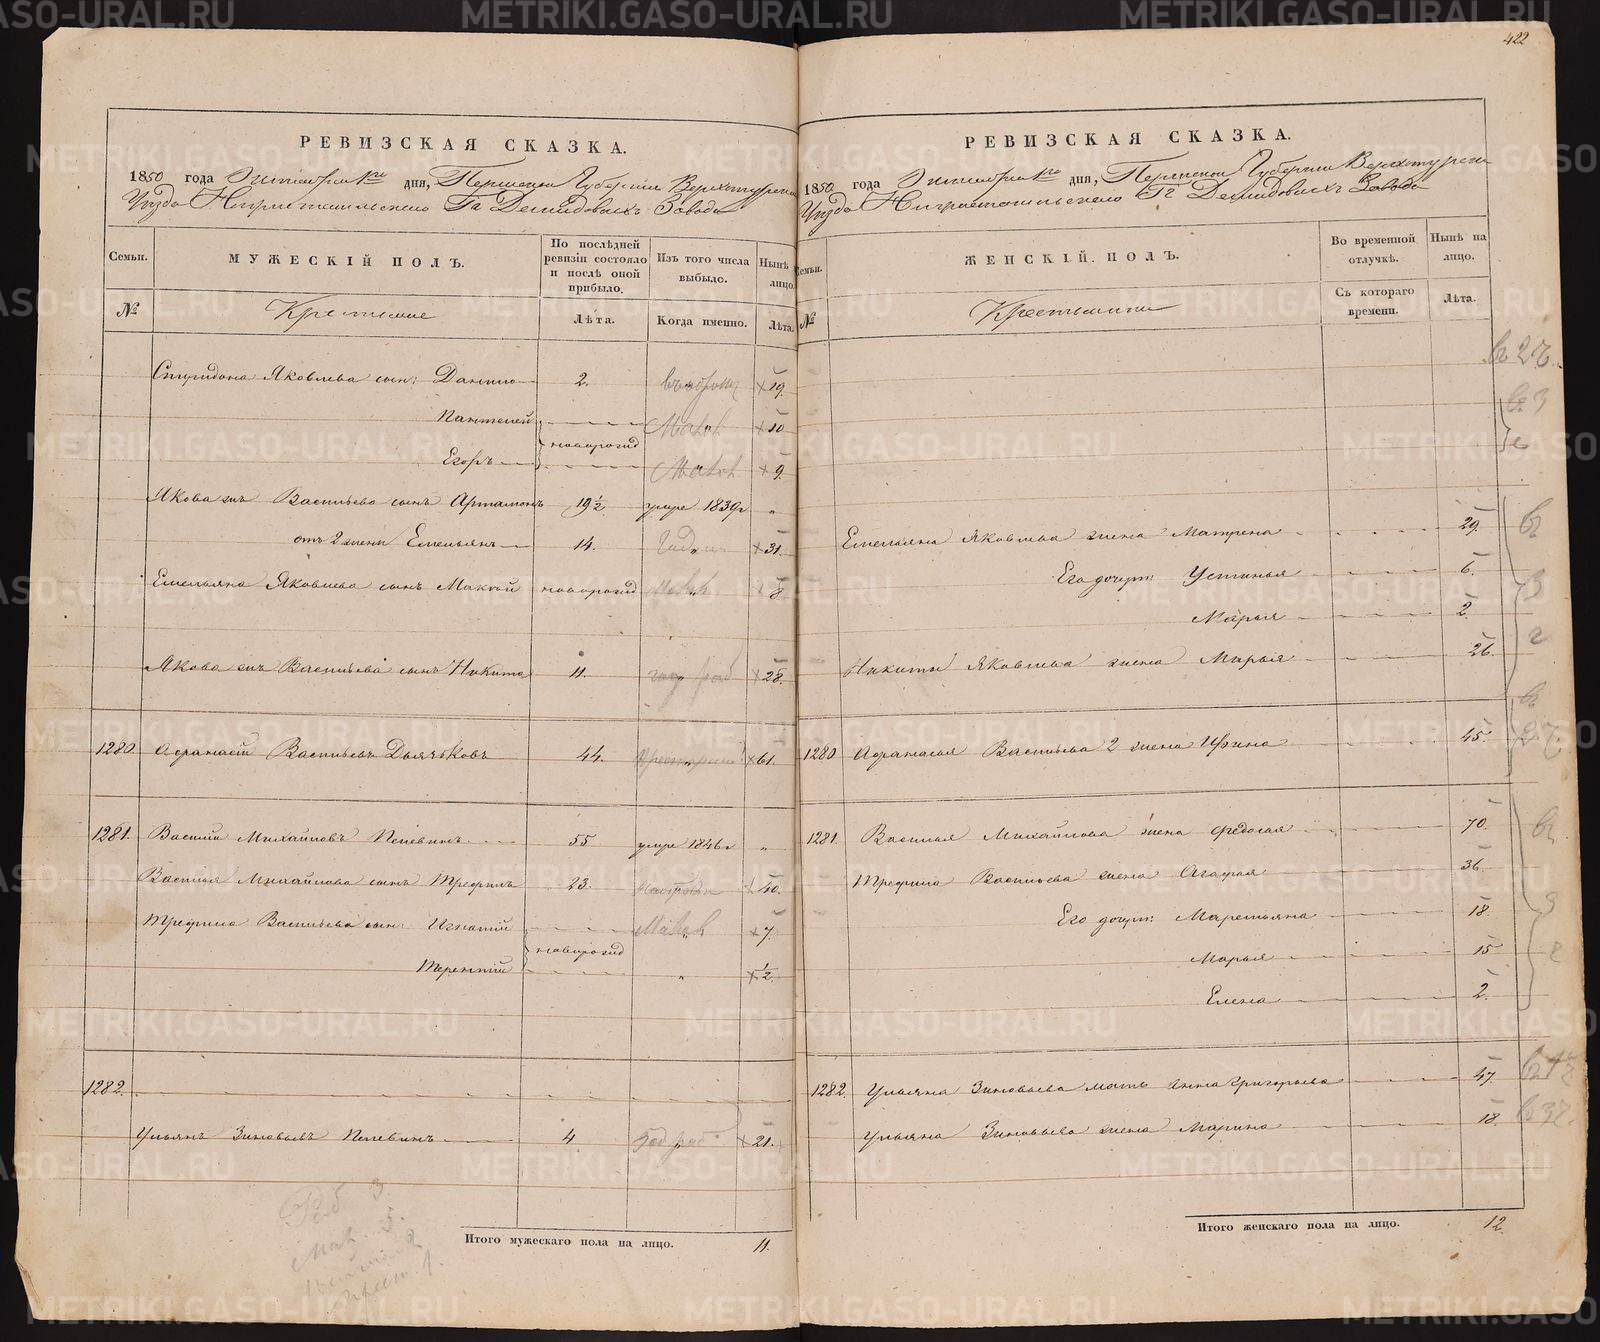 422
РЕВИЗСКАЯ СКАЗКА.
1850 года Октября 1го дня, Пермской Губернии Верхотурска
Уезда Нижнетагильскаго Гг Демидовыхъ Завода
Семьи.
МУЖЕСКІЙ ПОЛЪ.
По послѣдней ревизіи состояло и послѣ оной прибыло.
Изъ того числа выбыло.
Нынѣ на лицо.
№
Крестьяне
Лѣта.
Когда именно.
Лѣта.
Спиридона Яковлева сын: Данило 2. 19.
Пантелей 10
новорожд
Егоръ 9.
Якова жъ Васильева сынъ Артамонъ 19½ умре 1839г „
отъ 2 жены Емельянъ 14. 31.
Емельяна Яковлева сынъ Мокей новорожд 8
Якова жъ Васильева сынъ Никита 11. 28.
1280 Афанасій Васильевъ Дьячковъ 44. 61.
1281. Василій Михайловъ Пелевинъ 55 умре 1846г „
Василья Михайлова сынъ Трефилъ 23. 40.
Трефила Васильева сын: Игнатій 7.
новорожд
Терентій „ ½.
1282.
Ульянъ Зиновьевъ Пелевинъ 4 21.
Итого мужескаго пола на лицо. 11.
РЕВИЗСКАЯ СКАЗКА.
1850 года Октября 1го дня, Пермской Губернии Верхотурска
Уезда Нижнетагильскаго Гг Демидовыхъ Завода
Семьи.
ЖЕНСКІЙ ПОЛЪ.
Во временной отлучкѣ.
Нынѣ на лицо.
№
Крестьянки
Съ котораго времени.
Лѣта.
Емельяна Яковлева жена Матрена 29.
Его дочери: Устинья 6.
Марья 2.
Никиты Яковлева жена Марья 26.
1280 Афанасья Васильева 2 жена Ирина 45.
1281. Василья Михайлова жена Федосья 70.
Трефила Васильева жена Агафья 36.
Его дочери: Маремьяна 18.
Марья 15
Елена 2.
1282. Ульяна Зиновьева мать Анна Григорьева 47.
Ульяна Зиновьева жена Марина 18.
Итого женскаго пола на лицо. 12.
METRIKI.GASO-URAL.RU